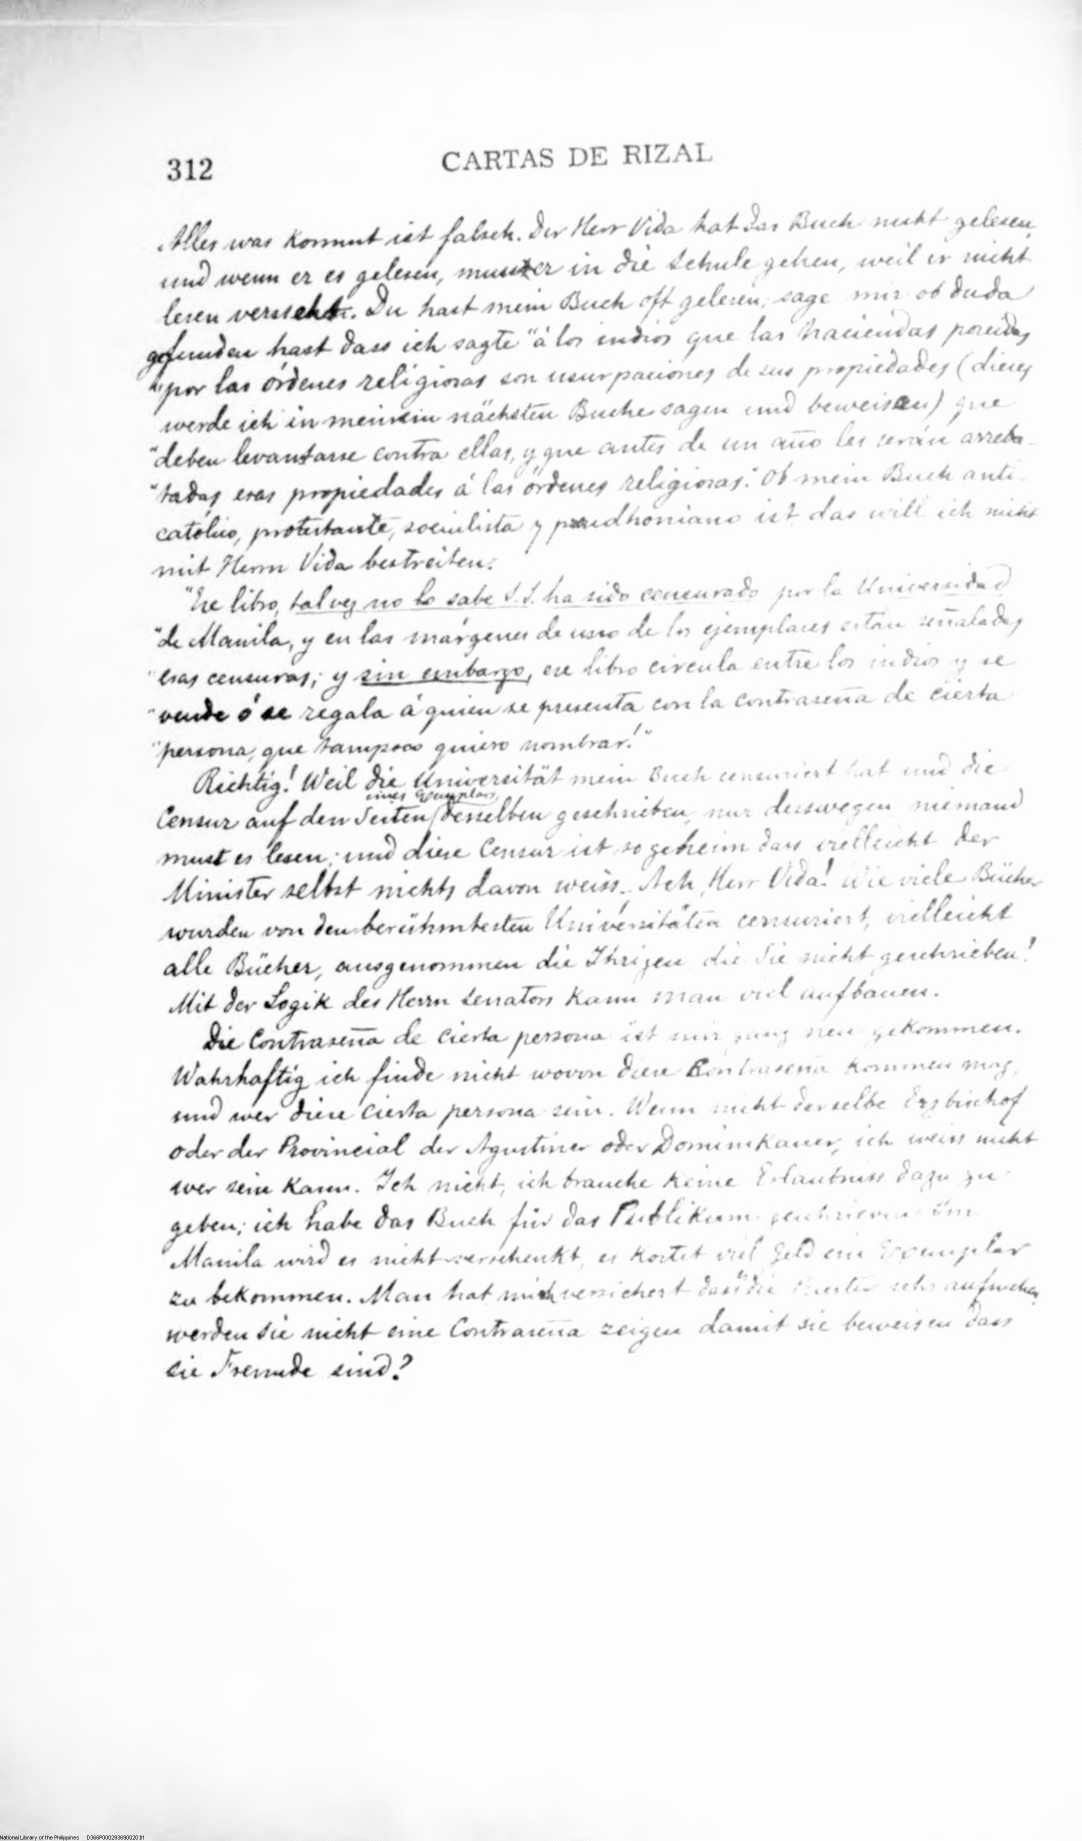 312 CARTAS DE RIZAL
Alles was kommt ist falsch. Der Herr Vida hat das Buch nicht gelesen,
und wenn er es gelesen, muss er in die Schule gehen, weil er nicht
lesen versteht. Du hast mein Buch oft gelesen; sage mir ob du da
gefunden hast dass ich sagte "á los indios que las haciendas poseidas
"por las órdenes religiosas son usurpaciones de sus propiedades (dieses
werde ich in meinem nächsten Buche sagen und beweisen) que
"deben levantarse contra ellas, y que antes de un año les serán arreba-
"tadas esas propiedades á las órdenes religiosas." Ob mein Buch anti-
católico, protestante, socialista y proudhoniano ist, das will ich nicht
mit Herrn Vida bestreiten.
"Ese libro, tal vez no lo sabe S.S. ha sido censurado por la Universidad
"de Manila, y en las márgenes de uno de los ejemplares están señaladas
"esas censuras; y sin embargo, ese libro circula entre los indios y se
"vende ó se regala á quien se presenta con la contraseña de cierta
"persona, que tampoco quiero nombrar!"
Richtig! Weil die Universität mein Buch censuriert hat und die
eines Exemplars
Censur auf den Seiten desselben geschrieben, nur desswegen niemand
must es lesen; und diese Censur ist so geheim dass vielleicht der
Minister selbst nichts davon weiss. Ach, Herr Vida! Wie viele Bücher
wurden von den berühmtesten Universitäten censuriert, vielleicht
alle Bücher, ausgenommen die Ihrigen die Sie nicht geschrieben!
Mit der Logik des Herrn Senators kann man viel aufbauen.
Die Contraseña de cierta persona ist mir ganz neu gekommen.
Wahrhaftig ich finde nicht wovon diese Contraseña kommen mag,
und wer diese cierta persona sein. Wenn nicht derselbe Erzbischof
oder der Provincial der Agustiner oder Dominikaner, ich weiss nicht
wer sein kann. Ich nicht, ich brauche keine Erlaubniss dazu zu
geben; ich habe das Buch für das Publikum geschrieben. In
Manila wird es nicht verschenkt, es kostet viel Geld ein Exemplar
zu bekommen. Man hat mich versichert dass die sehr aufsuchen,
werden sie nicht eine Contraseña zeigen damit sie beweisen dass
sie Fremde sind?
National Library of the Philippines